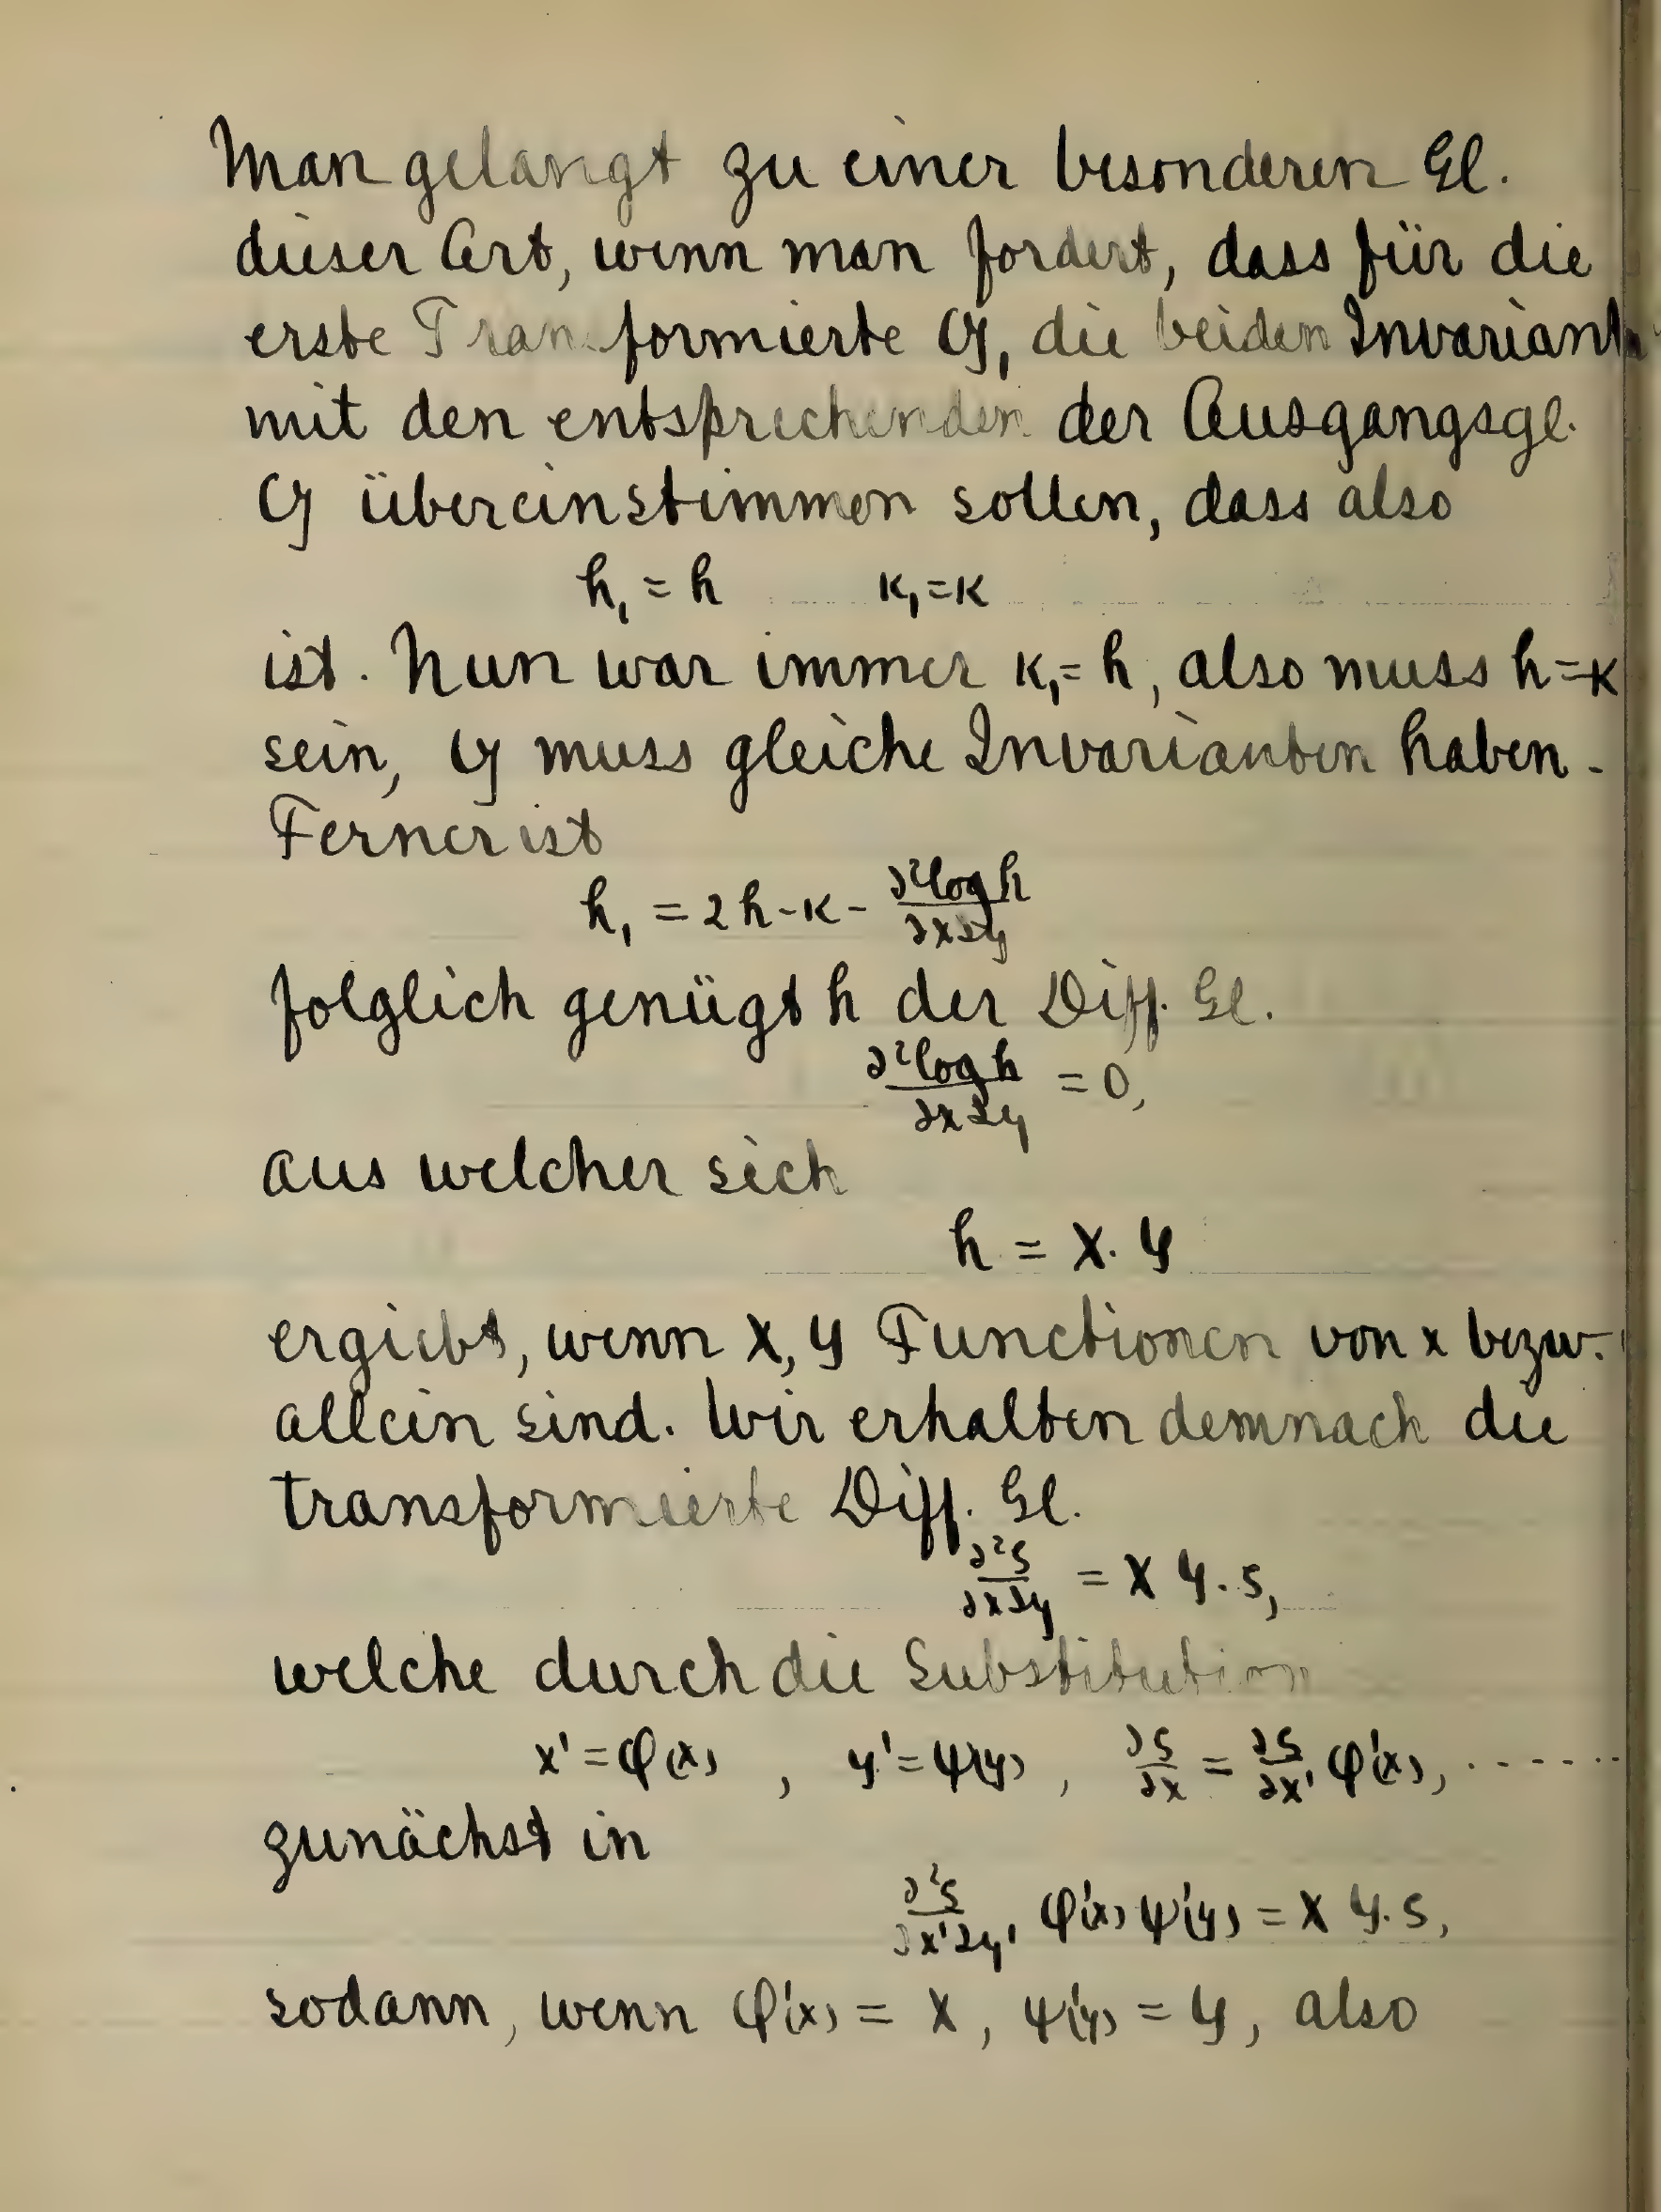 Man gelangt zu einer besonderen Gl.
dieser Art, wenn man fordert, dass für die
erste Transformierte G₁ die beiden Invarianten
mit den entsprechenden der Ausgangsgl.
G übereinstimmen sollen, dass also
h₁ = h κ₁ = κ
ist. Nun war immer κ₁ = h, also muss h = κ
sein, G muss gleiche Invarianten haben.
Ferner ist
h₁ = 2h - κ - ∂² log h / ∂x∂y
folglich genügt h der Diff. Gl.
∂² log h / ∂x∂y = 0,
aus welcher sich
h = X. Y
ergiebt, wenn X, Y Functionen von x bezw.
allein sind. Wir erhalten demnach die
transformierte Diff. Gl.
∂²ς / ∂x∂y = X Y. ς,
welche durch die Substitution
x' = φ(x) , y' = ψ(y) , ∂ς/∂x = ∂ς/∂x' φ'(x), ......
zunächst in
∂²ς / ∂x'∂y' φ'(x) ψ'(y) = X Y. ς,
sodann, wenn φ'(x) = X, ψ'(y) = Y, also